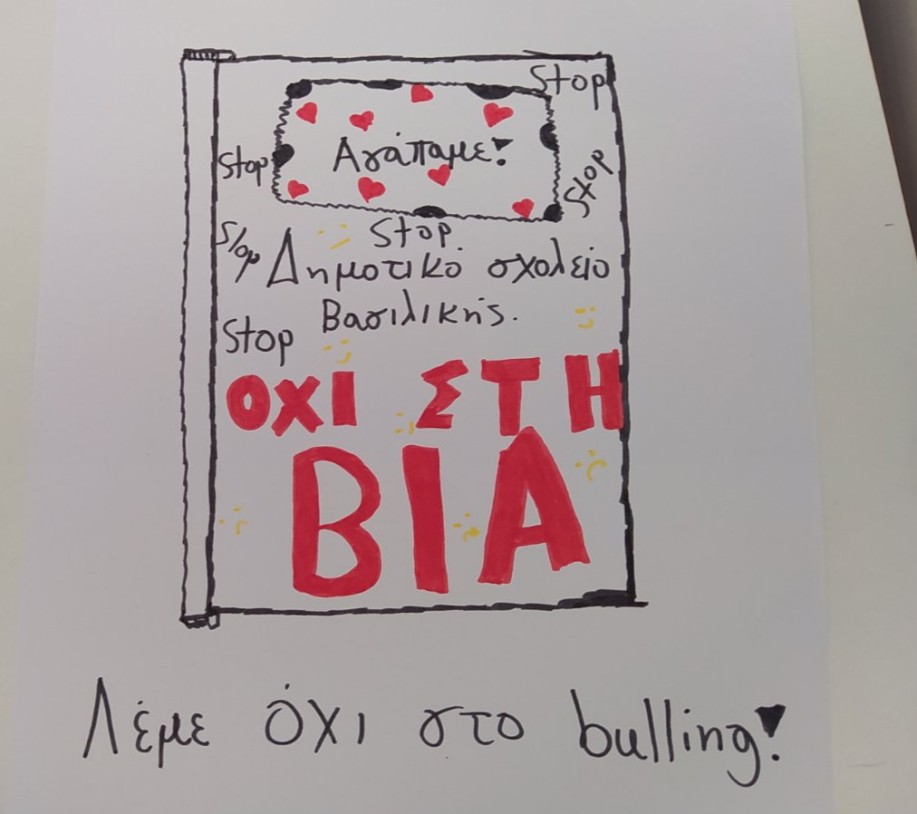 Stop
Αγάπαμε!
Stop
Stop
Stop
Stop.
Δημοτικό σχολείο
Βασιλικής.
Stop
ΟΧΙ ΣΤΗ
ΒΙΑ
Λέμε όχι στο bulling!